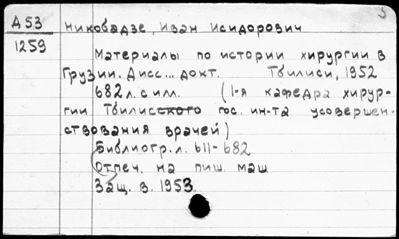 А 53
1259
Никобадзе, Иван Исидорович
Материалы по истории хирургии в
Грузии. Дисс... докт. Тбилиси, 1952
682 л. с илл. (1-я кафедра хирур-
гии Тбилисского гос. ин-та усовершен-
ствования врачей)
Библиогр. л. 611-682
Отпеч. на пиш. маш
Защ. в. 1953.